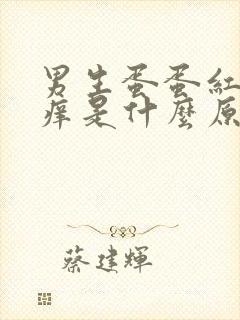 男生蛋蛋紅
痒是什麼原
蔡建輝